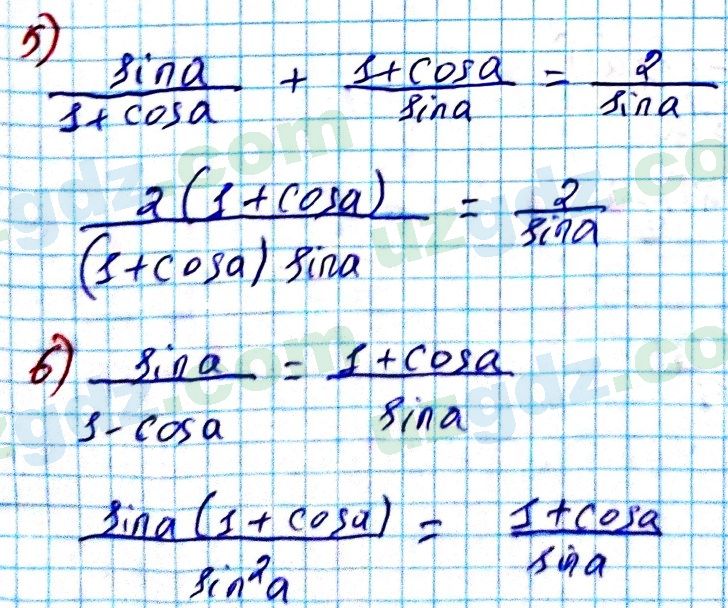 5) sina/(1+cosa) + (1+cosa)/sina = 2/sina
2(1+cosa)/((1+cosa) sina) = 2/sina
6) sina/(1-cosa) = (1+cosa)/sina
sina(1+cosa)/sin²a = (1+cosa)/sina
uzgdz.com